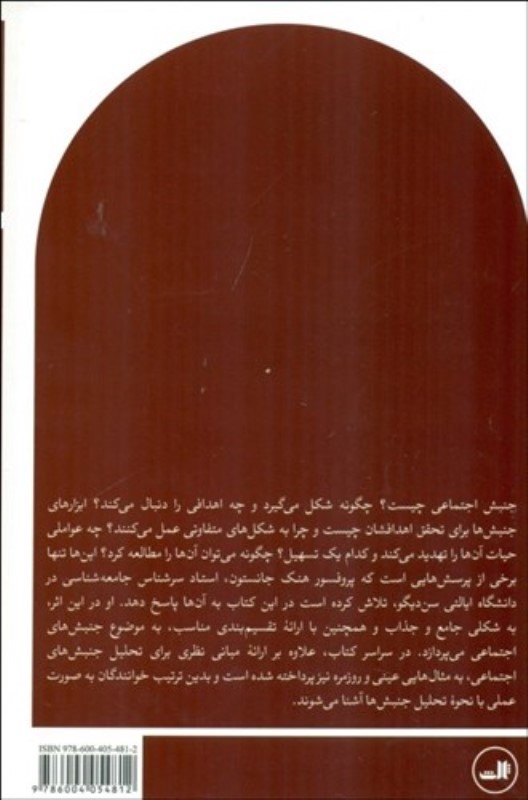 جنبش اجتماعی چیست؟ چگونه شکل می‌گیرد و چه اهدافی را دنبال می‌کند؟ ابزارهای
جنبش‌ها برای تحقق اهدافشان چیست و چرا به شکل‌های متفاوتی عمل می‌کنند؟ چه عواملی
حیات آن‌ها را تهدید می‌کند و کدام یک تسهیل؟ چگونه می‌توان آن‌ها را مطالعه کرد؟ این‌ها تنها
برخی از پرسش‌هایی است که پروفسور هنک جانستون، استاد سرشناس جامعه‌شناسی در
دانشگاه ایالتی سن‌دیگو، تلاش کرده است در این کتاب به آن‌ها پاسخ دهد. او در این اثر،
به شکلی جامع و جذاب و همچنین با ارائهٔ تقسیم‌بندی مناسب، به موضوع جنبش‌های
اجتماعی می‌پردازد. در سراسر کتاب، علاوه بر ارائهٔ مبانی نظری برای تحلیل جنبش‌های
اجتماعی، به مثال‌هایی عینی و روزمره نیز پرداخته شده است و بدین ترتیب خوانندگان به صورت
عملی با نحوهٔ تحلیل جنبش‌ها آشنا می‌شوند.
ISBN 978-600-405-481-2
9 786004 054812
ثالث